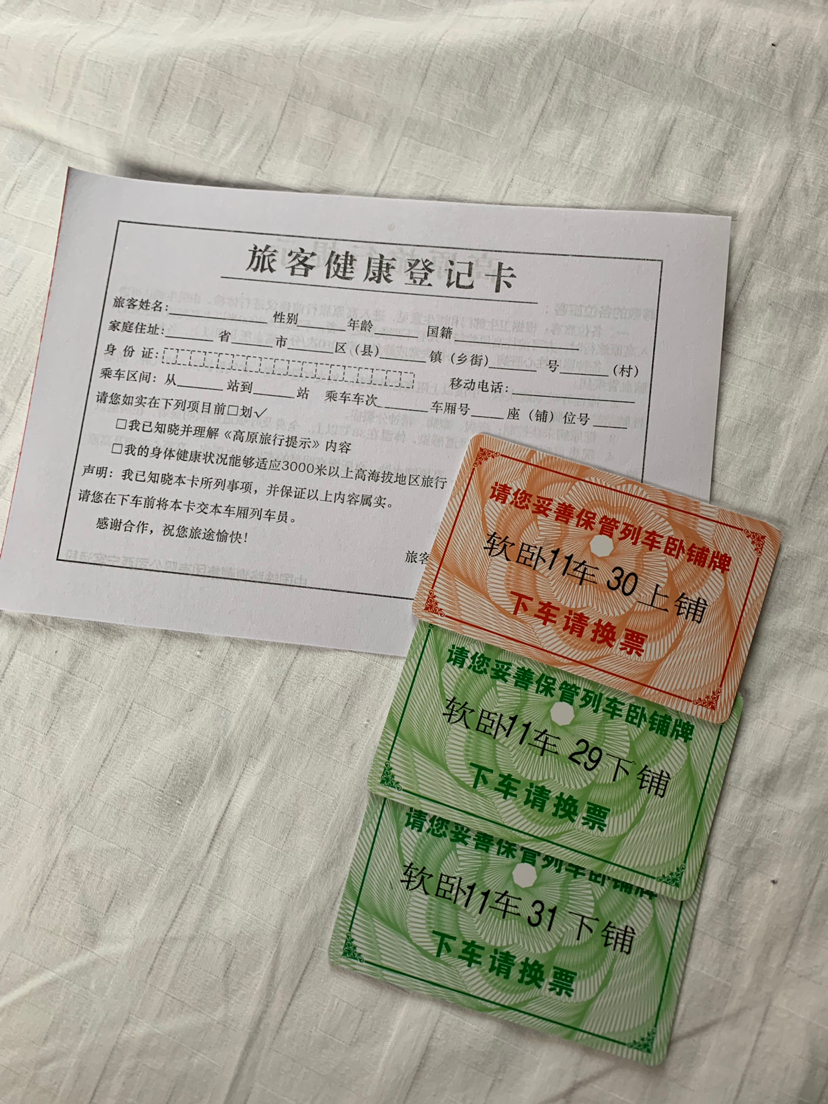 旅客健康登记卡
旅客姓名：______ 性别____ 年龄____ 国籍____
家庭住址：______省____市____区（县）____镇（乡街）____号____（村）
身 份 证：□□□□□□□□□□□□□□□□□□ 移动电话：____
乘车区间：从____站到____站 乘车车次____车厢号____座（铺）位号____
请您如实在下列项目前□划✓
□我已知晓并理解《高原旅行提示》内容
□我的身体健康状况能够适应3000米以上高海拔地区旅行
声明：我已知晓本卡所列事项，并保证以上内容属实。
请您在下车前将本卡交本车厢列车员。
感谢合作，祝您旅途愉快！
旅客
请您妥善保管列车卧铺牌
软卧11车 30上铺
下车请换票
请您妥善保管列车卧铺牌
软卧11车 29下铺
下车请换票
请您妥善保管列车卧铺牌
软卧11车 31下铺
下车请换票